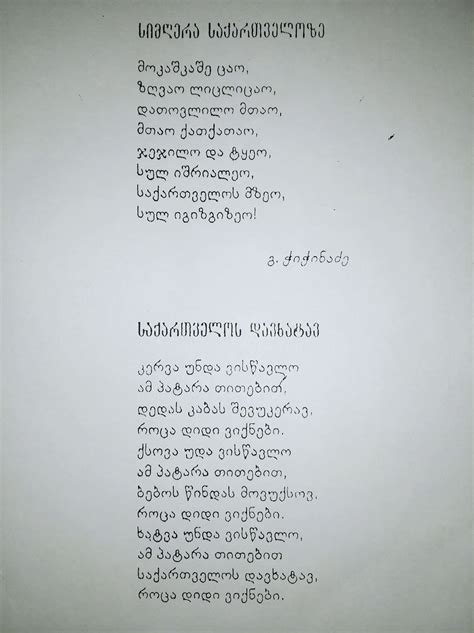 სიმღერა საქართველოზე
მოკაშკაშე ცაო,
ზღვაო ლიცლიცაო,
დათოვლილო მთაო,
მთაო ქათქათაო,
ჯეჯილო და ტყეო,
სულ იშრიალეო,
საქართველოს მზეო,
სულ იგიზგიზეო!
გ. ჭიჭინაძე
საქართველოს დავხატავ
კერვა უნდა ვისწავლო
ამ პატარა თითებით,
დედას კაბას შევუკერავ,
როცა დიდი ვიქნები.
ქსოვა უდა ვისწავლო
ამ პატარა თითებით,
ბებოს წინდას მოვუქსოვ.
როცა დიდი ვიქნები.
ხატვა უნდა ვისწავლო,
ამ პატარა თითებით
საქართველოს დავხატავ,
როცა დიდი ვიქნები.